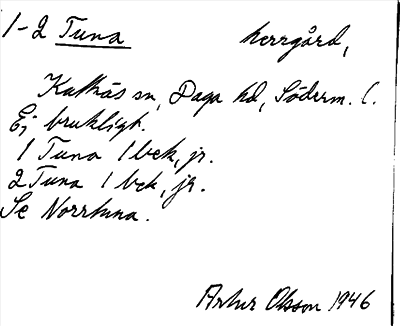 1-2 Tuna herrgård,
Kattnäs sn, Daga hd, Söderm. l.
Ej brukligt.
1 Tuna 1 bek, jr.
2 Tuna 1 bek, jr.
Se Norrtuna.
Artur Olsson 1946